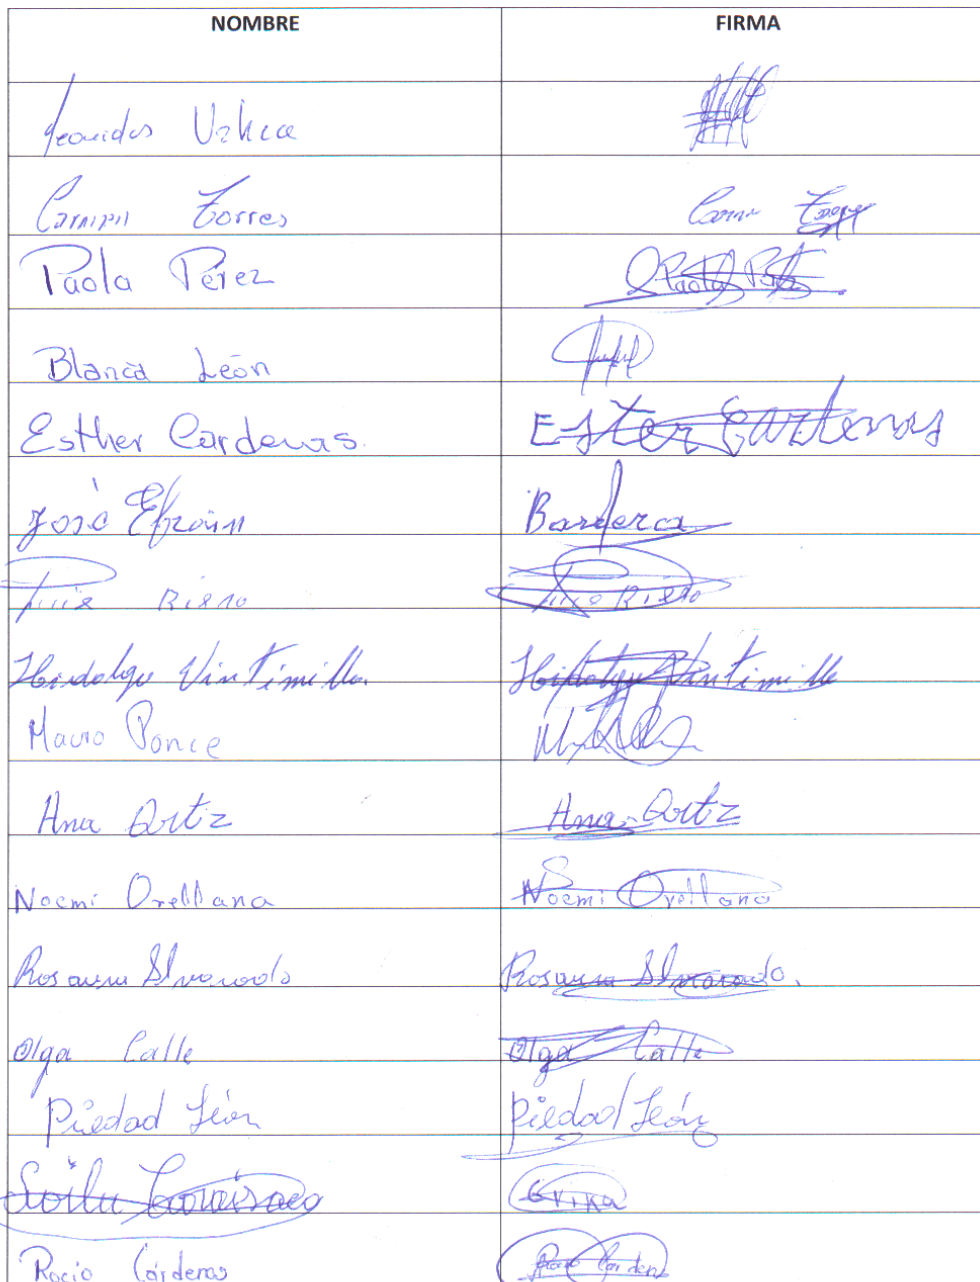 NOMBRE FIRMA
Leonidas Uzhca
Carmen Torres Carmen Torres
Paola Pérez Paola Pérez
Blanca León
Esther Cárdenas. Ester Cartenas
José Efraín Barrera
Luis Riera Luis Riera
Hidalgo Vintimilla Hidalgo Vintimilla
Mauro Ponce
Ana Ortiz Ana Ortiz
Noemi Orellana Noemi Orellana
Rosaura Alvarado Rosaura Alvarado.
Olga Calle Olga Calle
Piedad León Piedad León
Rocio Cárdenas Rocio Cárdenas